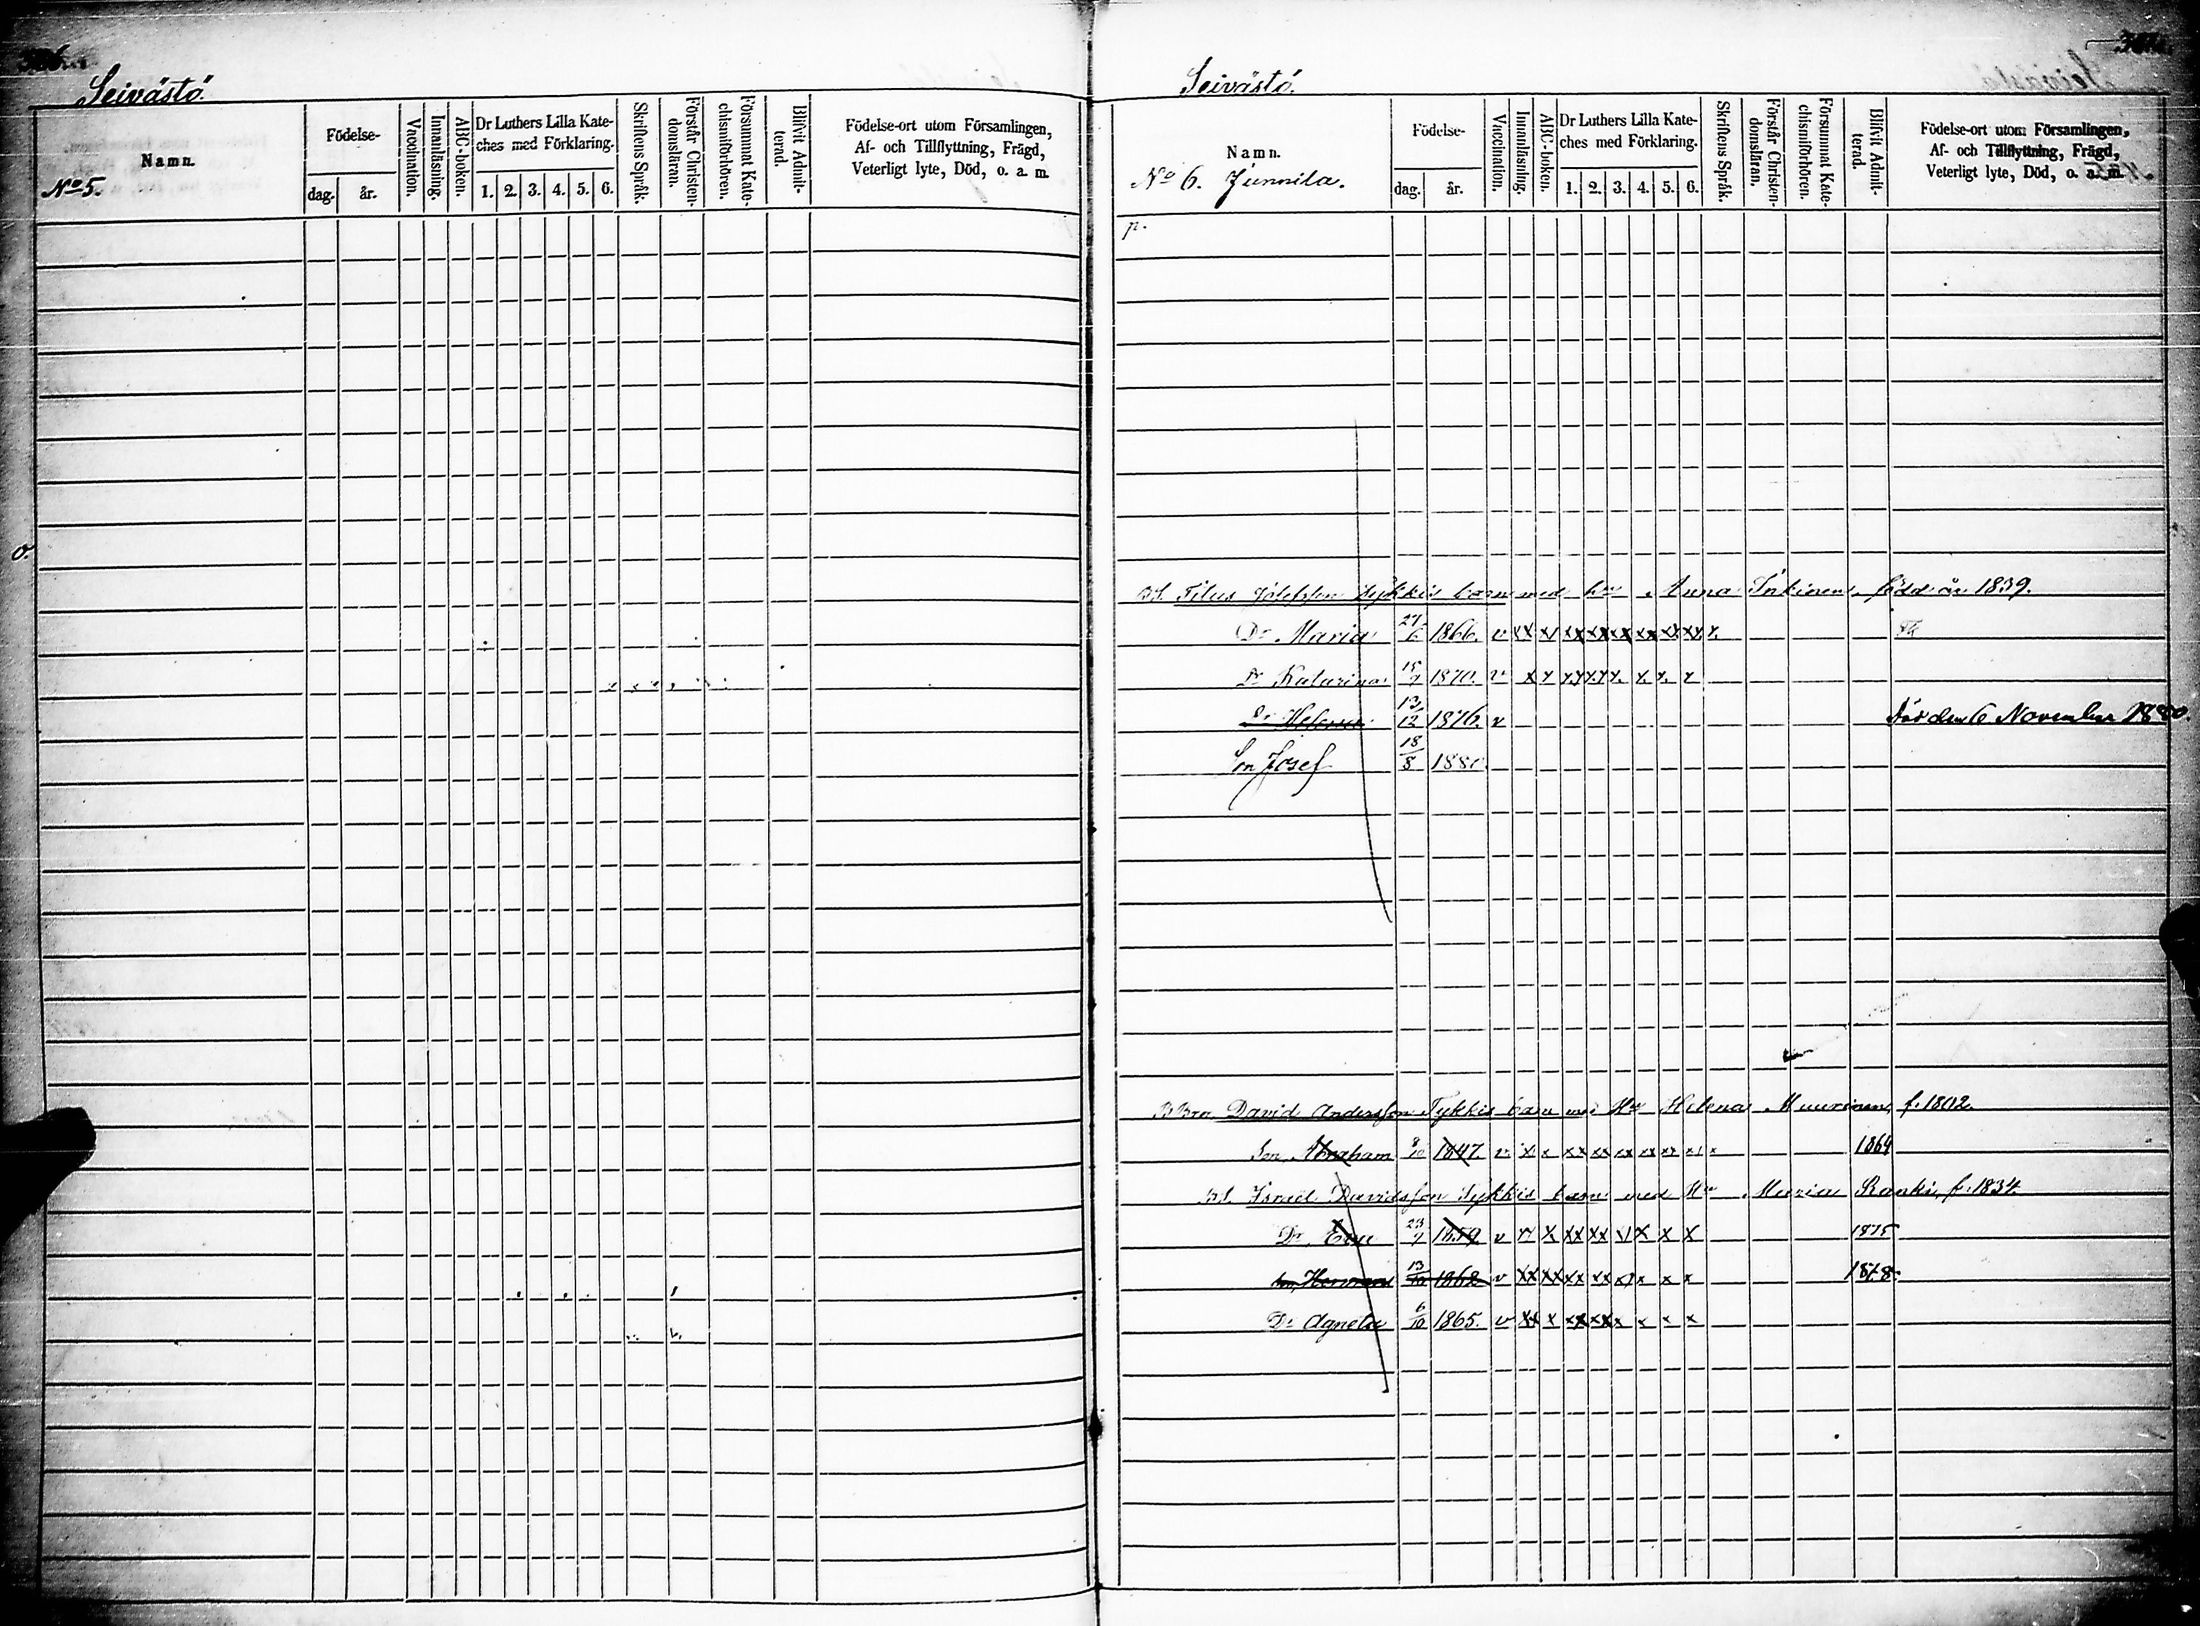 Seivästö.
Namn.
No 5.
Födelse-
dag.
år.
Vaccination.
Innanläsning.
ABC-boken.
Dr Luthers Lilla Kate-
ches med Förklaring.
1. 2. 3. 4. 5. 6.
Skriftens Språk.
Förstår Christen-
domsläran.
Försummat Kate-
chismiförhören.
Blifvit Admit-
terad.
Födelse-ort utom Församlingen,
Af- och Tillflyttning, Frägd,
Veterligt lyte, Död, o. a. m.
Seivästö.
Namn.
No 6. Junnila.
Födelse-
dag.
år.
Vaccination.
Innanläsning.
ABC-boken.
Dr Luthers Lilla Kate-
ches med Förklaring.
1. 2. 3. 4. 5. 6.
Skriftens Språk.
Förstår Christen-
domsläran.
Försummat Kate-
chismiförhören.
Blifvit Admit-
terad.
Födelse-ort utom Församlingen,
Af- och Tillflyttning, Frägd,
Veterligt lyte, Död, o. a. m.
p.
BS. Titus Josefsson Tykkis barn med hu Anna Inkinen, född år 1839.
Dr Maria 27/6 1866. v xx x/ xx xx xx xx xx xx x
Dr Katarina 15/7 1870. v x x xx xx x. x. x. x
Dr Helena 13/12 1876. v Död den 6 November 1880.
Son Josef 18/8 1880
BBror David Andersson Tykkis barn med Hu Helena Muurinen, f. 1802.
Son Abraham 8/10 1847 v x x xx xx xx xx xx x/ x 1864
BS. Israel Davidsson Tykkis barn med Hu Maria Ronki, f. 1834.
Dr Eva 23/7 1859 v x x xx xx x/ x x x 1875
Son Herman 13/10 1862 v xx xx xx xx x/ x x x 1878.
Dr Agneta 6/10 1865. v xx x xx xx x x x x